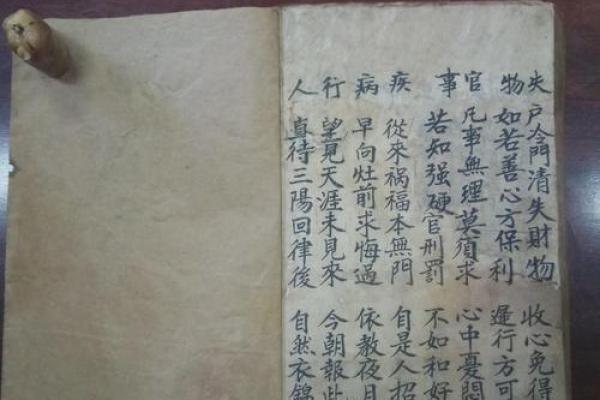 失 户冷門清失財物 收心免得
物 如若善心方保利 遲行方可
官 凡事無理莫須求 心中憂悶
事 若知强硬官刑罰 不如和好
疾 從來禍福本無門 自是人招
病 早向灶前求悔過 依教夜
行 望見天涯未見來 今朝報此
人 直待三陽回律後 自然衣錦